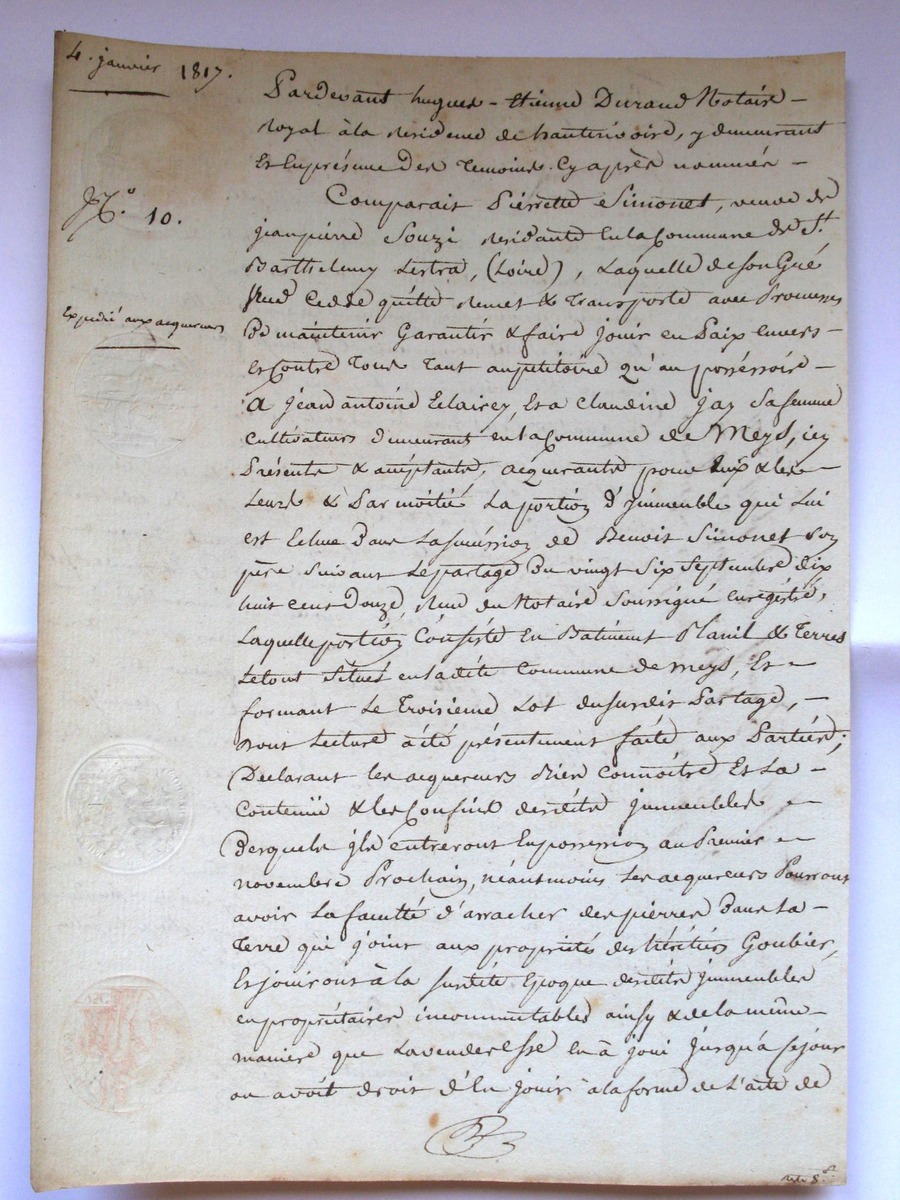 4. janvier 1817.
Pardevant hugues-Etienne Durand Notaire
royal à la residence de hauterivoire, y demeurant
et en présence des temoins cy après nommés
N.° 10.
Comparait Pierrette Simonet, veuve de
jean pierre Souzi residante en la Commune de St.
Barthelemy Lestra, (Loire), Laquelle de son Gré
Vend cedde quitte remet & transporte avec Promesses
Expedié aux acquereurs
De maintenir Garantir & faire jouir en Paix envers
et Contre Tous tant au petitoire qu'au posséssoire
A jean antoine Eclairey, et a Claudine jay sa femme
cultivateurs demeurant en la Commune de Meys, icy
Présents & acéptants, acquerants pour Eux & les
Leurs & Par moitié La portion d'jmmeubles qui Lui
est Echue Dans La succéssion de Benoit Simonet son
père suivant Le partage du vingt Six Septembre dix
huit cent Douze, Reçu du Notaire Soussigné enregistré,
Laquelle portion Consiste en Batiment Planil & Terres
Le tout Situés en la dite Commune de meys, Et
formant Le troisieme Lot du susdit Partage,
dont Lecture a été présentement faite aux Parties;
Declarant les acquereurs Bien Connoitre Et La
Contenüe & les Confins desdits jmmeubles
Desquels jls entreront en possession au Premier
novembre Prochain, néantmoins Les acquereurs Pourront
avoir La faculté d'arracher des pierres Dans La
Terre qui joint aux propriétés des héritiers Goubier,
Et jouiront à la susdite Epoque desdits jmmeubles
en propriétaires incommutables ainsy & de la même
maniere que La venderesse en à joui jusqu'a ce jour
ou avoit droit d'en jouir à la forme de L'acte de